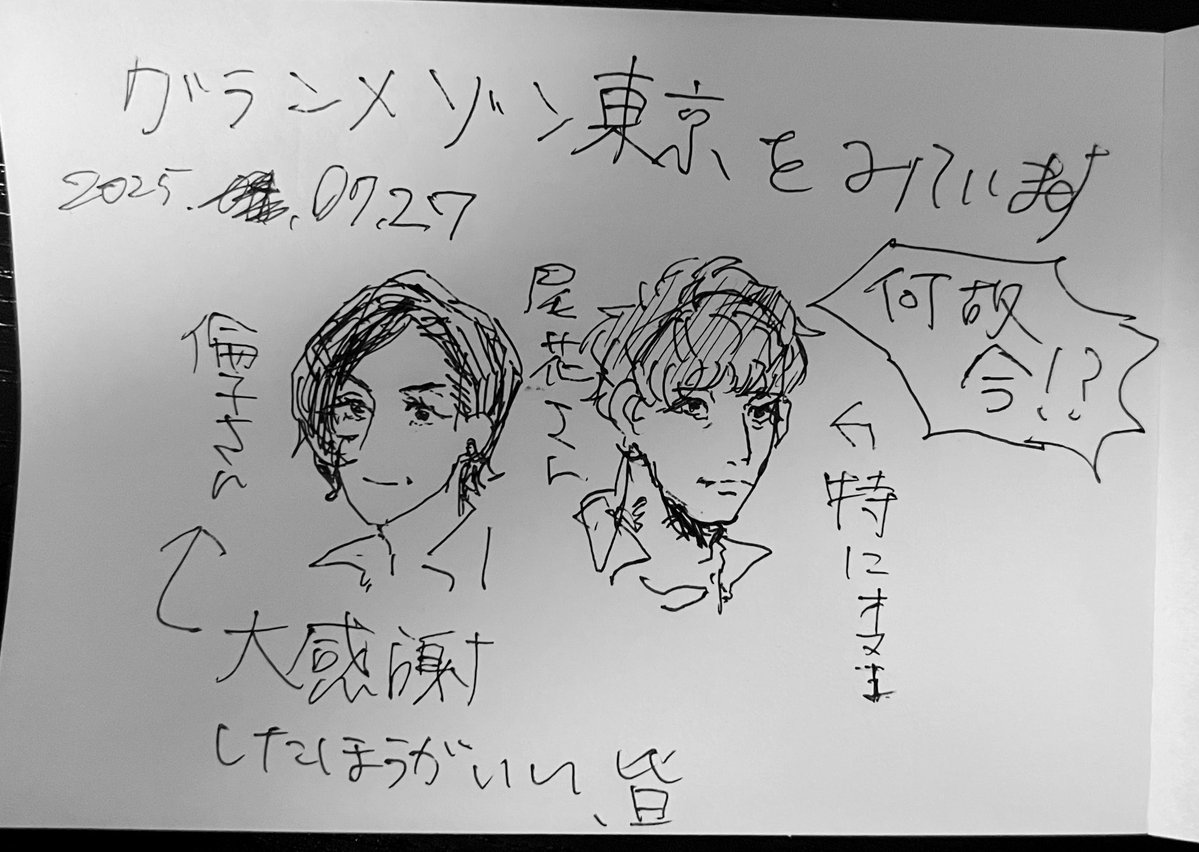 グランメゾン東京をみています
2025.07.27
倫子さん
尾花さん
何故
今!?
←特にオマエ
大感謝
したほうがいい、皆